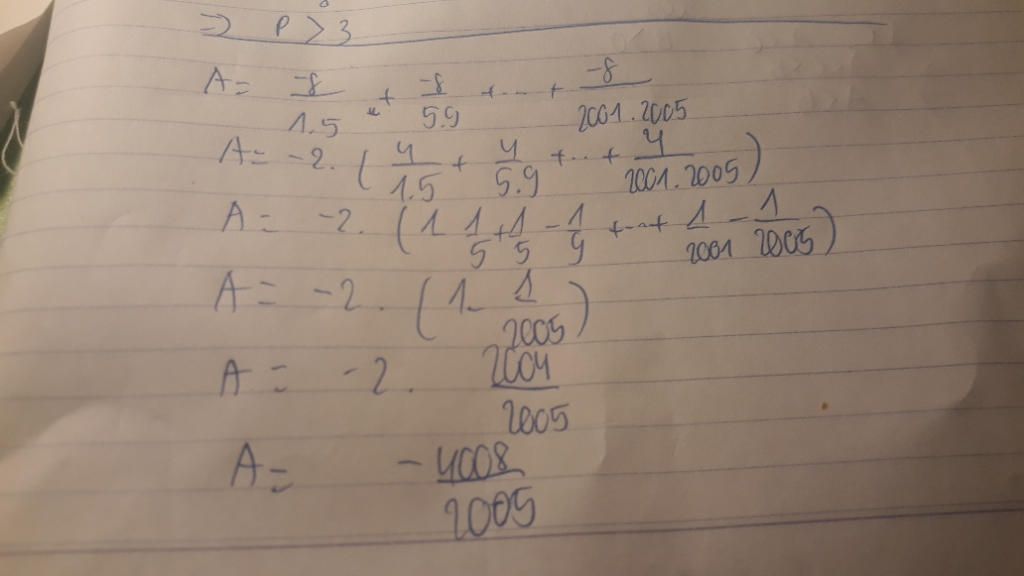 ⇒ P > 3
A = -8/1.5 + -8/5.9 + ... + -8/2001.2005
A = -2. ( 4/1.5 + 4/5.9 + ... + 4/2001.2005 )
A = -2. ( 1 1/5 + 1/5 - 1/9 + ... + 1/2001 - 1/2005 )
A = -2. ( 1 - 1/2005 )
A = -2. 2004/2005
A = -4008/2005